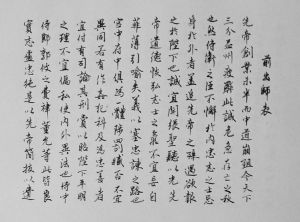 前出師表
先帝創業未半而中道崩殂今天下
三分益州疲弊此誠危急存亡之秋
也然侍衛之臣不懈於內忠志之士忘
身於外者蓋追先帝之殊遇欲報
之於陛下也誠宜開張聖聽以光先
帝遺德恢弘志士之氣不宜妄自
菲薄引喻失義以塞忠諫之路也
宮中府中俱為一體陟罰臧否不宜
異同若有作姦犯科及為忠善者
宜付有司論其刑賞以昭陛下平明
之理不宜偏私使內外異法也侍中
侍郎郭攸之費禕董允等此皆良
實志慮忠純是以先帝簡拔以遺